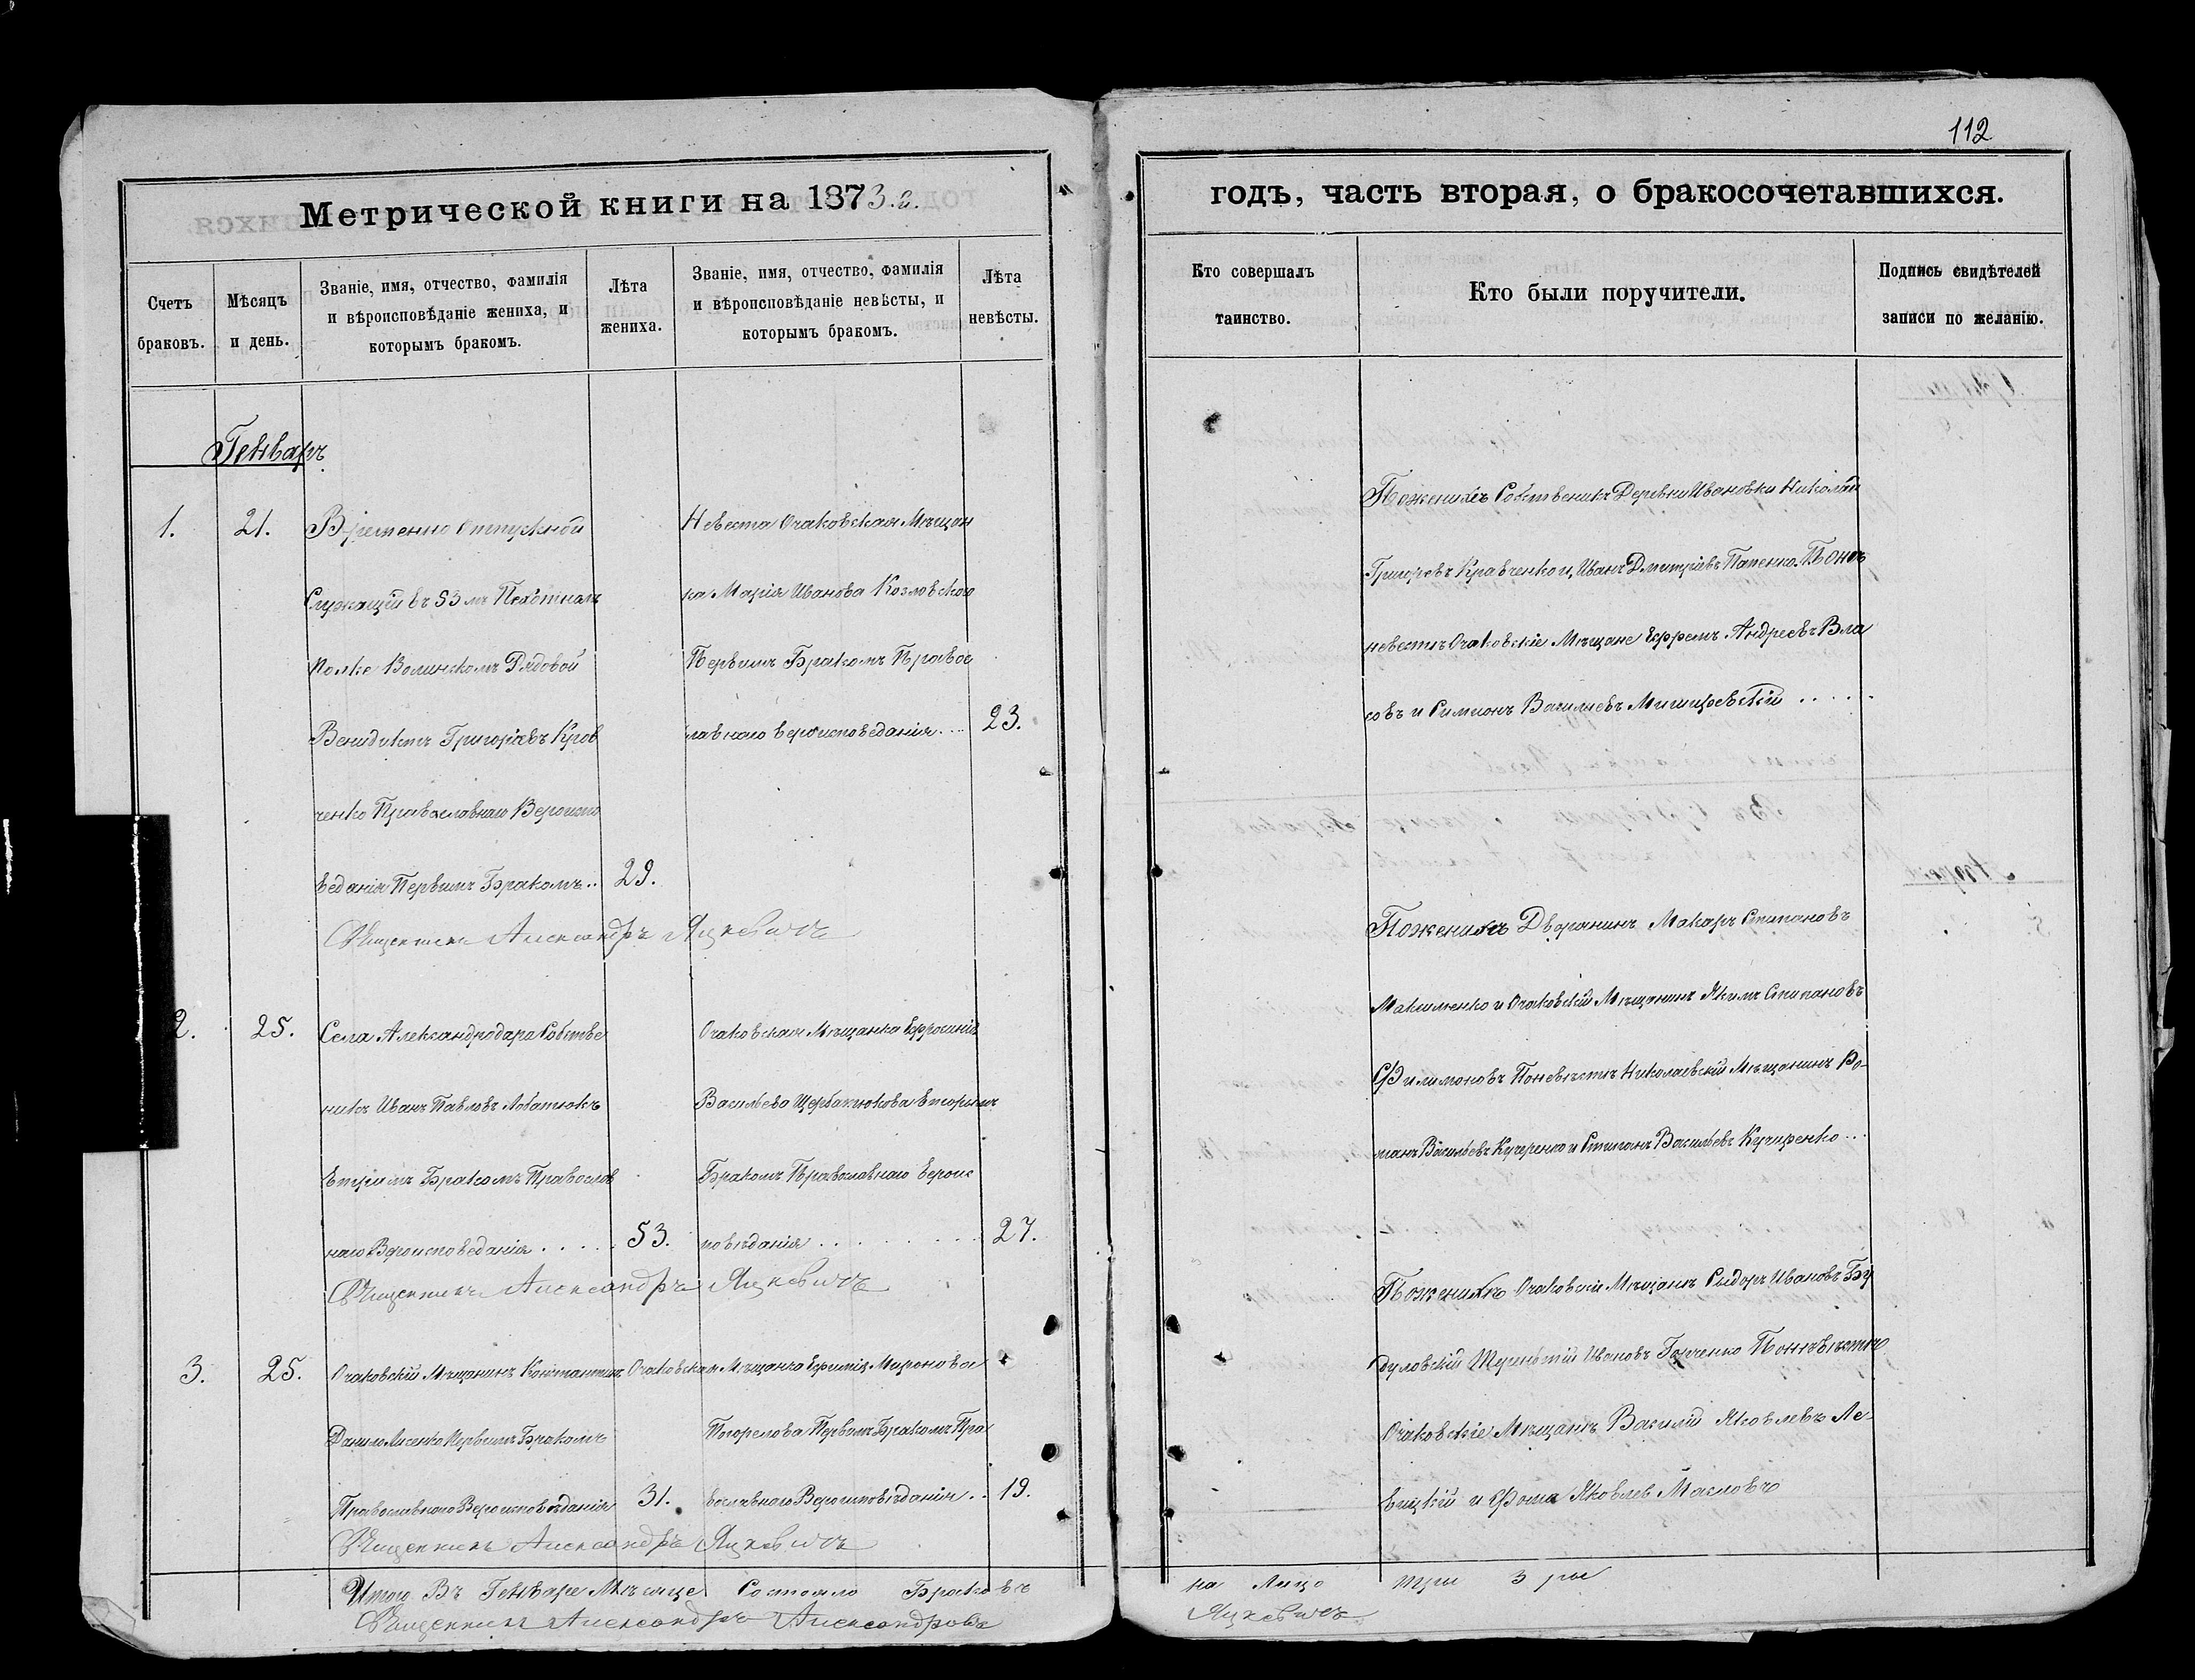 112
Метрической книги на 1873.г.
годъ, часть вторая, о бракосочетавшихся.
Счетъ браковъ.
Мѣсяцъ и день.
Званіе, имя, отчество, фамилія
и вѣроисповѣданіе жениха, и
которымъ бракомъ.
Лѣта
жениха.
Званіе, имя, отчество, фамилія
и вѣроисповѣданіе невѣсты, и
которымъ бракомъ.
Лѣта
невѣсты.
Кто совершалъ
таинство.
Кто были поручители.
Подпись свидѣтелей
записи по желанію.
Генварь
1.
21.
Временно отпускной
Служащій въ 53мъ Пехотномъ
Полке Волинскомъ Рядовой
Венидиктъ Григорівъ Крав
ченко Православнаго Вероиспо
веданія Первимъ Бракомъ..
29.
Невеста Очаковская Мѣщан
ка Марія Иванова Козловская
Первимъ Бракомъ Правос
лавнаго вероисповеданія...
23.
Священникъ Александръ Яцкевичъ
Поженихѣ Собственикъ Деревни Ивановки Николай
Григоревъ Кравченко и, Иванъ Дмитріевъ Папенко. Поне
невестѣ Очаковскіе Мѣщане Ефремъ Андреевъ Вла
совъ и Симионъ Василиевъ
2.
25.
Села Александродара Собстве
никъ Иванъ Павловъ Лобатюкъ
втріимъ Бракомъ Православ
наго Вероисповеданія.....
53.
Очаковская Мѣщанка Ефросинія
Васильева Щербатюкова вторимъ
Бракомъ Православнаго вероис
повѣданія.........
27.
Священникъ Александръ Яцкевичъ
Поженихѣ Дворянинъ Макаръ Стипановъ
Максименко и Очаковскій Мѣщанинъ Якимъ Стипановъ
Филимоновъ Поневѣстѣ Николаевскій Мѣщанинъ Ро-
манъ Васильевъ Кучеренко и Стипанъ Васильевъ Кучиренко...
3.
25.
Очаковскій Мѣщанинъ Константинъ
Данило Лисенко Первимъ Бракомъ
Православнаго Вероисповѣданія
31.
Очаковская Мѣщанка Ефимія Миронова
Погорелова Первимъ Бракомъ Пра
вославнаго Вероисповѣданія..
19.
Священникъ Александръ Яцкевичъ
Поженихѣ Очаковскіи Мѣщане Сидоръ Ивановъ Бу
дуловскій Ивановъ Гонченко Поневѣстѣ
Очаковскіе Мѣщанѣ Василій Яковлевъ Ле-
вицкій и Фома Яковлев Масловъ
Итого Въ Генваре Мѣсяце Состояло Браковъ
на Лицо три 3 ри
Священникъ Александръ Александровъ
Яцкевичъ